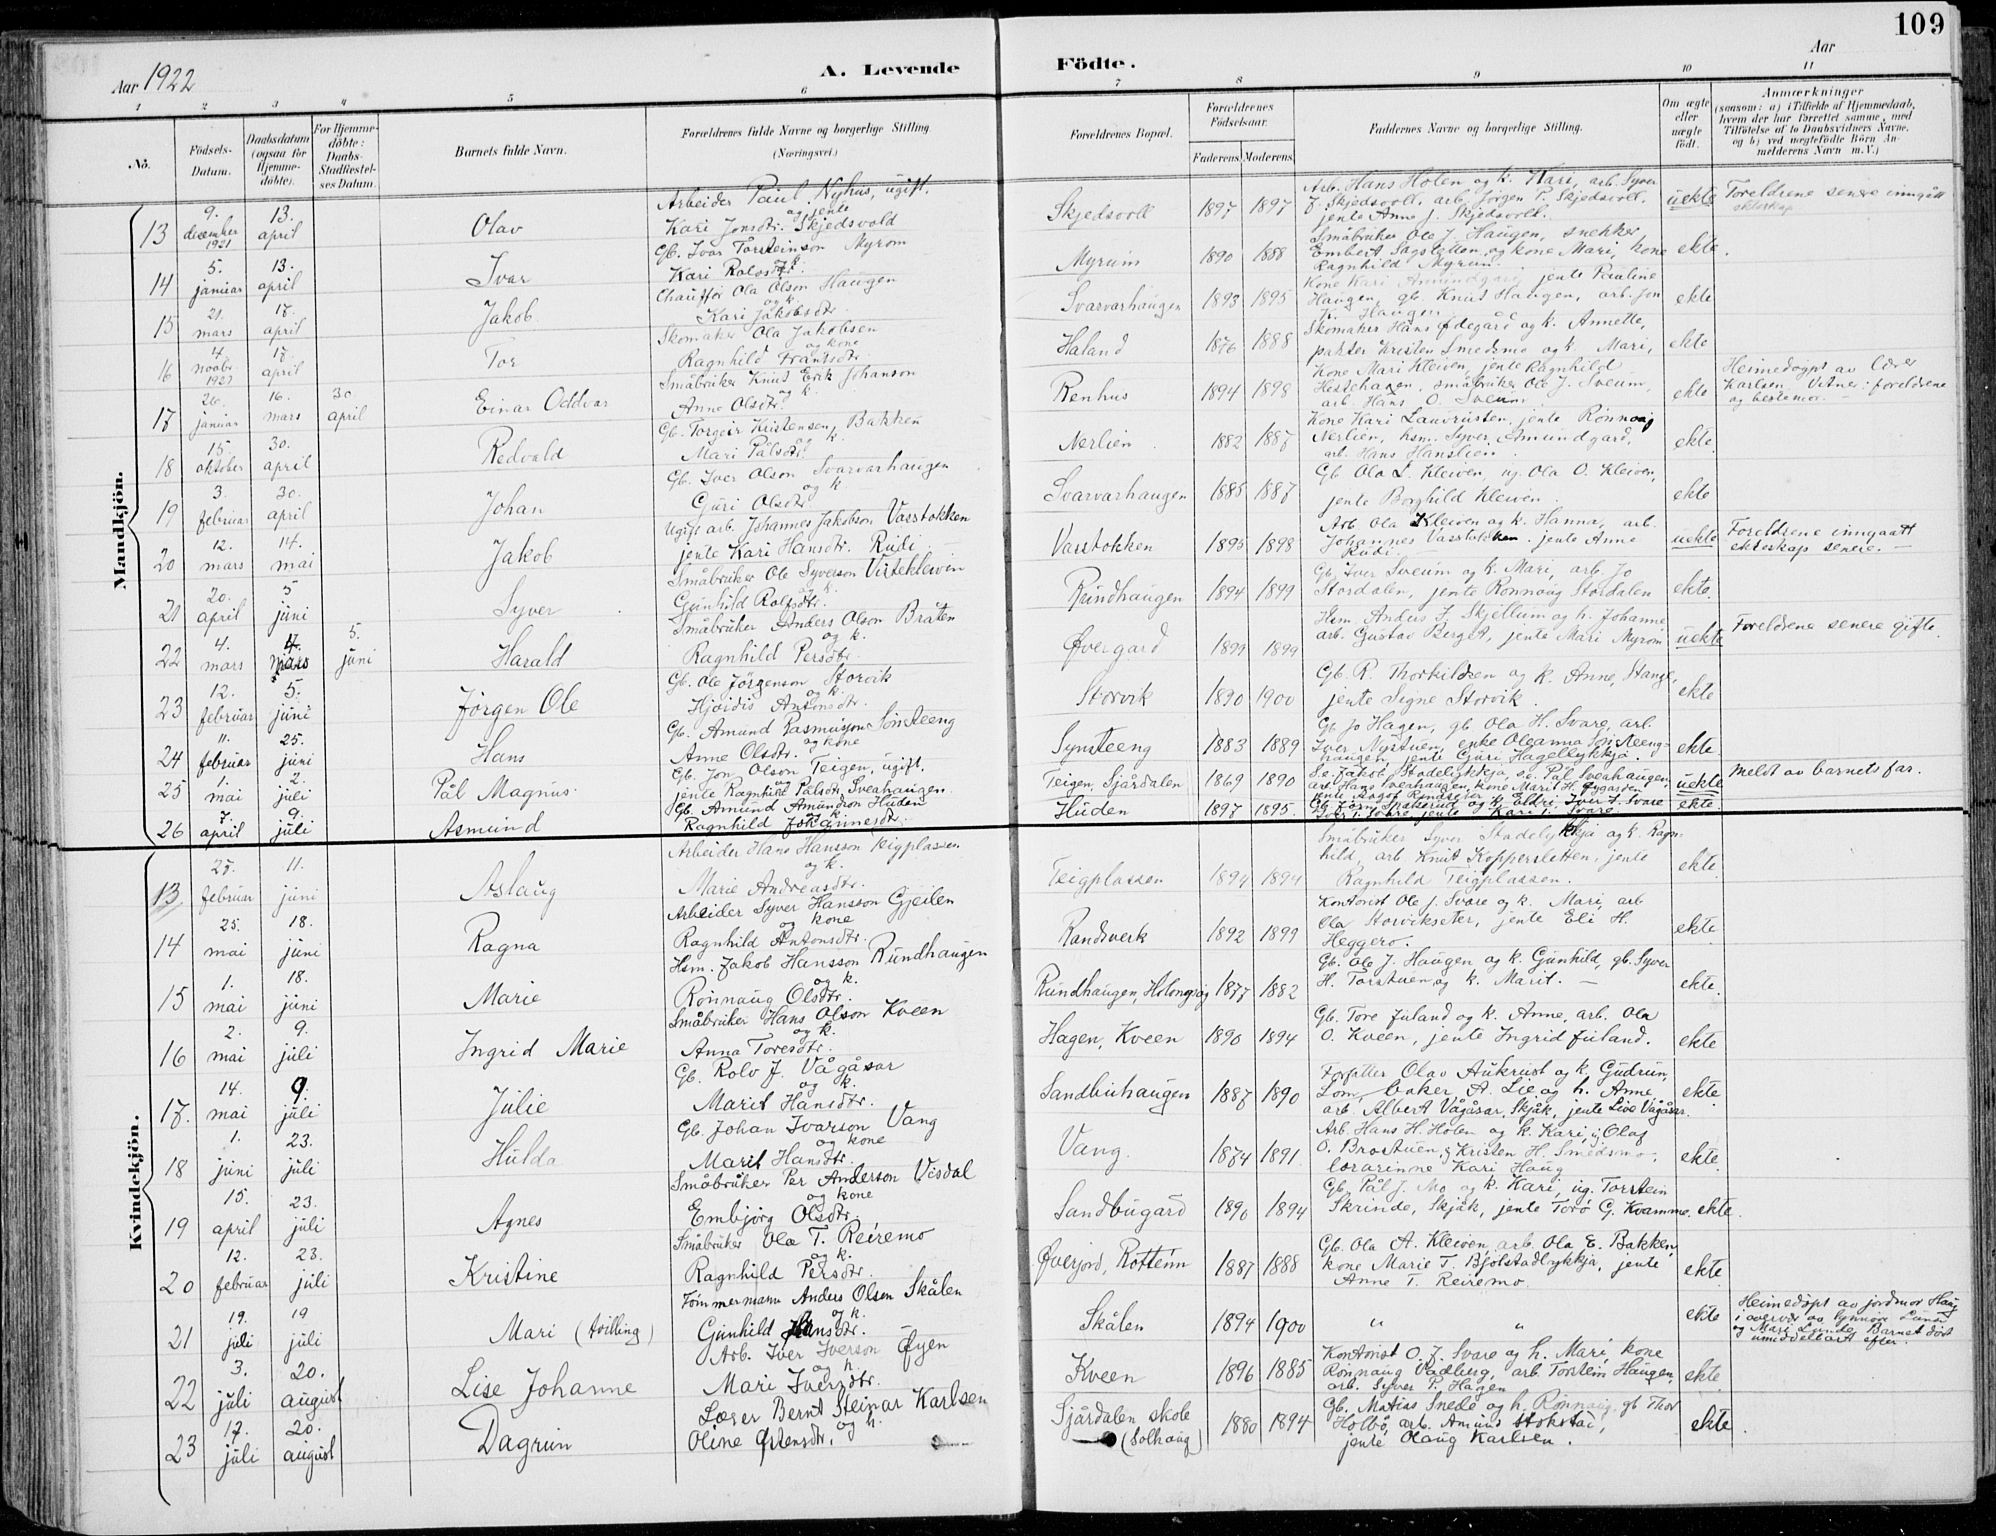 109
Aar 1922
A. Levende
Födte.
Aar
1 2 3 4 5 6 7 8 9 10 11
No.
Födsels-Datum.
Daabsdatum (ogsaa for Hjemme-döbte).
For Hjemme-döbte: Daabs-Stadfæstel-ses Datum.
Barnets fulde Navn.
Forældrenes fulde Navne og borgerlige Stilling. (Næringsvei.)
Forældrenes Bopæl.
Forældrenes Födselsaar.
Faderens. Moderens.
Faddernes Navne og borgerlige Stilling.
Om ægte eller uægte födt.
Anmærkninger
(saasom: a) i Tilfælde af Hjemmedaab, hvem der har forrettet samme, med Tilföielse af to Daabsvidners Navne, og b) ved uægtefödte Börn An-melderens Navn m. V.)
Mandkjön.
13 9. december 1921 13. april Olav Arbeider Paul Nyhus, ugift, og jente Kari Jonsdtr. Skjedsvold Skjedsvoll 1897 1897 Arb. Hans Holen og k. Kari, arb. Syver J. Skjedsvoll, arb. Jörgen P. Skjedsvoll, jente Anne J. Skjedsvoll. uekte Foreldrene senere inngått ekteskap
14 5. januar 13. april Ivar Gb. Ivar Torsteinson Myrom og k. Kari Rolvsdtr. Myrum 1890 1888 Småbruker Ola J. Haugen, snekker Embert Sagsletten og kone Mari, kone Ragnhild Myrum. ekte.
15 21. mars 17. april Jakob Chaufför Ola Olson Haugen og k. Kari Jakobsdtr. Svarvarhaugen 1893 1895 Kone Kari Amundgard, jente Pauline Haugen, gb. Knut Haugen, arb. Jon Haugen ekte
16 4. novbr. 1921 17. april Tor Skomaker Ola Jakobsen og kone Ragnhild Frantsdtr. Haland 1876 1888 Skomaker Hans Ødegård og k. Annette, pakter Kristen Smedsmo og k. Mari, ekte
17 26. januar 16. mars 30 april Einar Oddvar Småbruker Knut Erik Johanson og k. Anne Olsdtr. Renhus 1894 1898 Kone Mari Kleiven, jente Ragnhild Hestehagen, småbruker Ole J. Sveum, arb. Hans O. Sveum ekte Heimedöpt av lærer Karlsen. Vitner: foreldrene og bestemor.
18 15 oktober 30. april Redvald Gb. Torgeir Kristensen Bakken og k. Mari Pålsdtr. Nerlien 1882 1887 Kone Kari Lauvrusten, jente Rönnaug Nerlien, hsm. Syver Amundgard, arb. Hans Hanslien. ekte.
19 3. februar 30. april Johan Gb. Iver Olson Svarvarhaugen og k Guri Olsdtr. Svarvarhaugen 1885 1887 Gb Ola L. Kleiven, ug. Ola O. Kleiven, jente Borghild Kleiven. ekte
20 12. mars 14. mai Jakob Ugift arb. Johannes Jakobson Vasstokken jente Kari Hansdtr. Rudi Vasstokken 1895 1898 Arb Ola Kleiven og k. Hanna, arb. Johannes Vasstokken. jente Anne Rudi. uekte Foreldrene inngaatt ekteskap senere.
21 20. april 5 juni Syver Småbruker Ole Syverson Viste­kleiven og k. Gunhild Rolfsdtr. Rundhaugen 1894 1899 Gb Iver Sveum og k. Mari, arb. Jo Stordalen, jente Rönnaug Stordalen ekte.
22 4. mars 4. mars 5. juni Harald Småbruker Anders Olson Bråten og k. Ragnhild Persdtr. Øvergard 1899 1899 Hsm. Anders J. Skjellum og h. Johanne arb. Gustav Berget, jente Mari Myrom uekte Foreldrene senere gifte.
23 12. februar 5. juni Jörgen Ole Gb. Ole Jörgenson Storvik og k. Hjördis Antonsdtr. Storvik 1890 1900 Gb. R. Thorkildsen og k. Anne, Stange, jente Signe Storvik. ekte
24 11. februar 25. juni Hans Gb. Amund Rasmusson Sönsteeng og kone Anne Olsdtr. Synsteeng 1883 1889 Gb Jo Hagen, gb. Ola H. Svare, arb. Iver Nystuen, enke Oleanna Sönsteeng-haugen, jente Guri Hagelykkja. ekte
25 1. mai 2. juli Pål Magnus Gb. Jon Olson Teigen, ugift, og jente Ragnhild Pålsdtr. Sveahaugen. Teigen, Sjårdalen 1869 1890 S.e. Jakob Stadelykkja, s.e. Pål Sveahaugen, arb. Hans Sveahaugen, kone Marit H. Nygarden uekte Meldt av barnets far.
26 7 april 9. juli Asmund Gb. Amund Amundson Huden og k. Ragnhild Johannesdtr. Huden 1897 1895. ekte.
Kvindekjön.
13 25. februar 11. juni Aslaug Arbeider Hans Hansson Teigplassen og k. Marie Andreasdtr. Teigplassen 1894 1894 Småbruker Syver Stadelykkja og k. Ragn-hild, arb. Knut Koppersletten, jente Ragnhild Teigplassen. ekte
14 25. mai 18. juni Ragna Arbeider Syver Hansson Gjeilen og kone Ragnhild Antonsdtr. Randsverk 1892 1899 Kontorist Ole J. Svare og k. Mari, arb Ola Storvikseter, jente Eli H. Heggero. ekte.
15 1. mai 18. juni Marie Hsm. Jakob Hansson Rundhaugen og k. Rönnaug Olsdtr. Rundhaugen, Holongsög 1877 1882 Gb. Ole J. Haugen og k. Gunhild, gb. Syver H. Torstuen og k. Marit. ekte.
16 2. mai 9. juli Ingrid Marie Småbruker Hans Olson Kveen og k. Anna Toresdtr. Hagen, Kveen 1890 1894 Gb. Tore Juland og k. Anne, arb. Ola O. Kveen, jente Ingrid Juland. ekte
17. 14. mai 9. juli Julie Gb. Rolv J. Vågåsar og k. Marit Hansdtr. Sandbuhaugen 1887 1890 Forfatter Olav Aukrust og k. Gudrun, Lom, baker A. Lie og h. Anne, arb. Albert Vågåsar, Skjåk, jente Live Vågåsar. ekte.
18 1. juni 23. juli Hulda Gb. Johan Ivarson Vang og kone Marit Hansdtr. Vang. 1874 1891. Arb. Hans H. Holen og k. Kari, g. Olaf O. Brostuen, g. Kristen H. Smedsmo, lærarinne Kari Haug ekte.
19 15. april 23. juli Agnes Småbruker Per Anderson Visdal og kone Embjörg Olsdtr. Sandbugard 1890 1894 Gb. Pål J. Mo og k. Kari, ug. Torstein Skrinde, Skjåk, jente Toro G. Kvamme. ekte.
20 12. februar 23. juli Kristine Småbruker Ola T. Reiremo og k. Ragnhild Persdtr. Øverjord, Rottenn 1887 1888 Gb. Ola A. Kleiven, arb. Ola E. Bakken, kone Marie T. Bjölstadlykkja, jente Anne T. Reiremo. ekte
21 19. juli 19 juli Mari (tvilling) Tömmermann Anders Olsen Skålen og k. Gunhild Hansdtr. Skålen 1894 1900 " " ekte Heimedöpt av jordmor Haug i overvær av Lunde og Mari Lunde. Barnet död umiddelbart efter.
22 3. juli 20. august Lise Johanne Arb. Iver Iverson Øyen og h. Mari Iversdtr. Kveen 1896 1885 Kontorist O. J. Svare og h. Mari, kone Rönnaug Vadberg, arb. Torstein Haugen, arb. Syver P. Hagen ekte.
23 17. juli 20. august Dagrun Lærer Bernt Steinar Karlsen og h. Oline Østensdtr. Sjårdalen skole (Solhaug) 1880 1894 Gb. Matias Snede og h. Rönnaug, gb Thor Holbö, arb. Amund Stokstad, jente Olaug Karlsen. ekte.